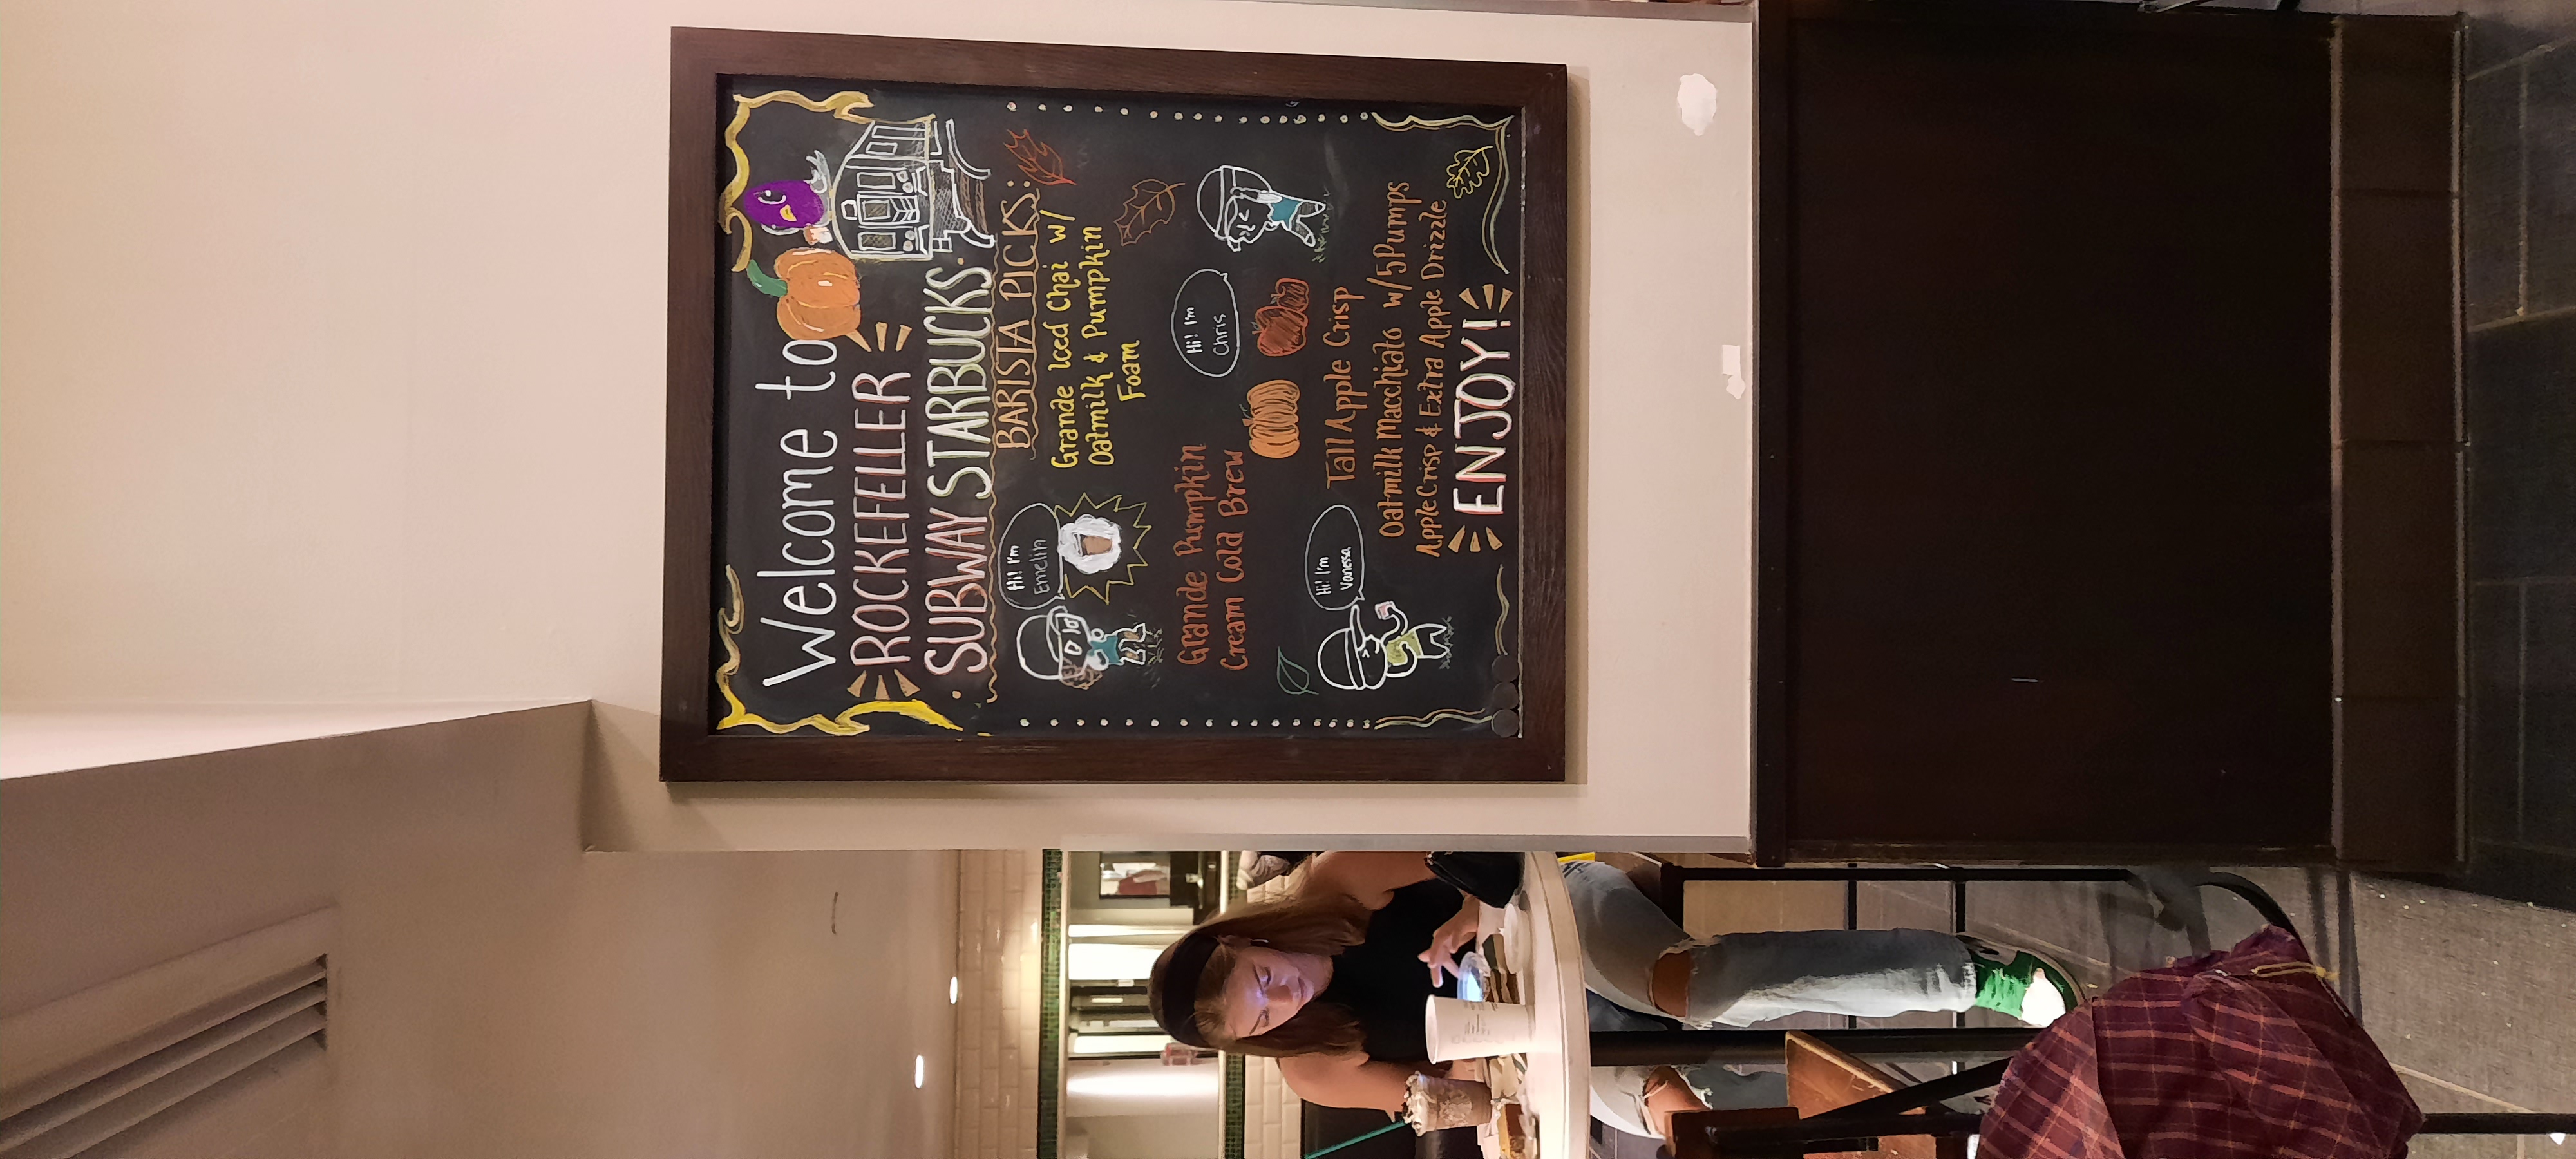 Welcome to
ROCKEFELLER
SUBWAY STARBUCKS
BARISTA PICKS:
Hi! I'm
Emelin
Grande Iced Chai w/
Oatmilk & Pumpkin
Foam
Hi! I'm
Chris
Grande Pumpkin
Cream Cold Brew
Hi! I'm
Vanessa
Tall Apple Crisp
Oatmilk Macchiato w/5Pumps
Apple Crisp & Extra Apple Drizzle
ENJOY!